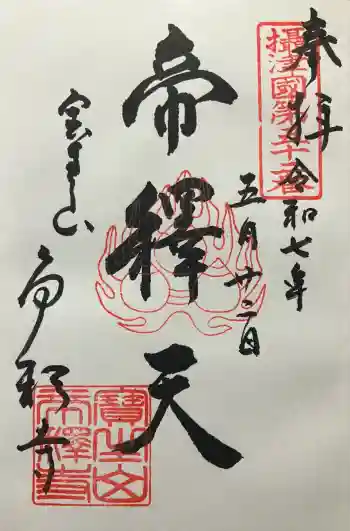 奉拝
令和七年
五月廿二日
攝津國第五十二番
帝釋天
宝生山
帝釈寺
寶生山
帝釋寺